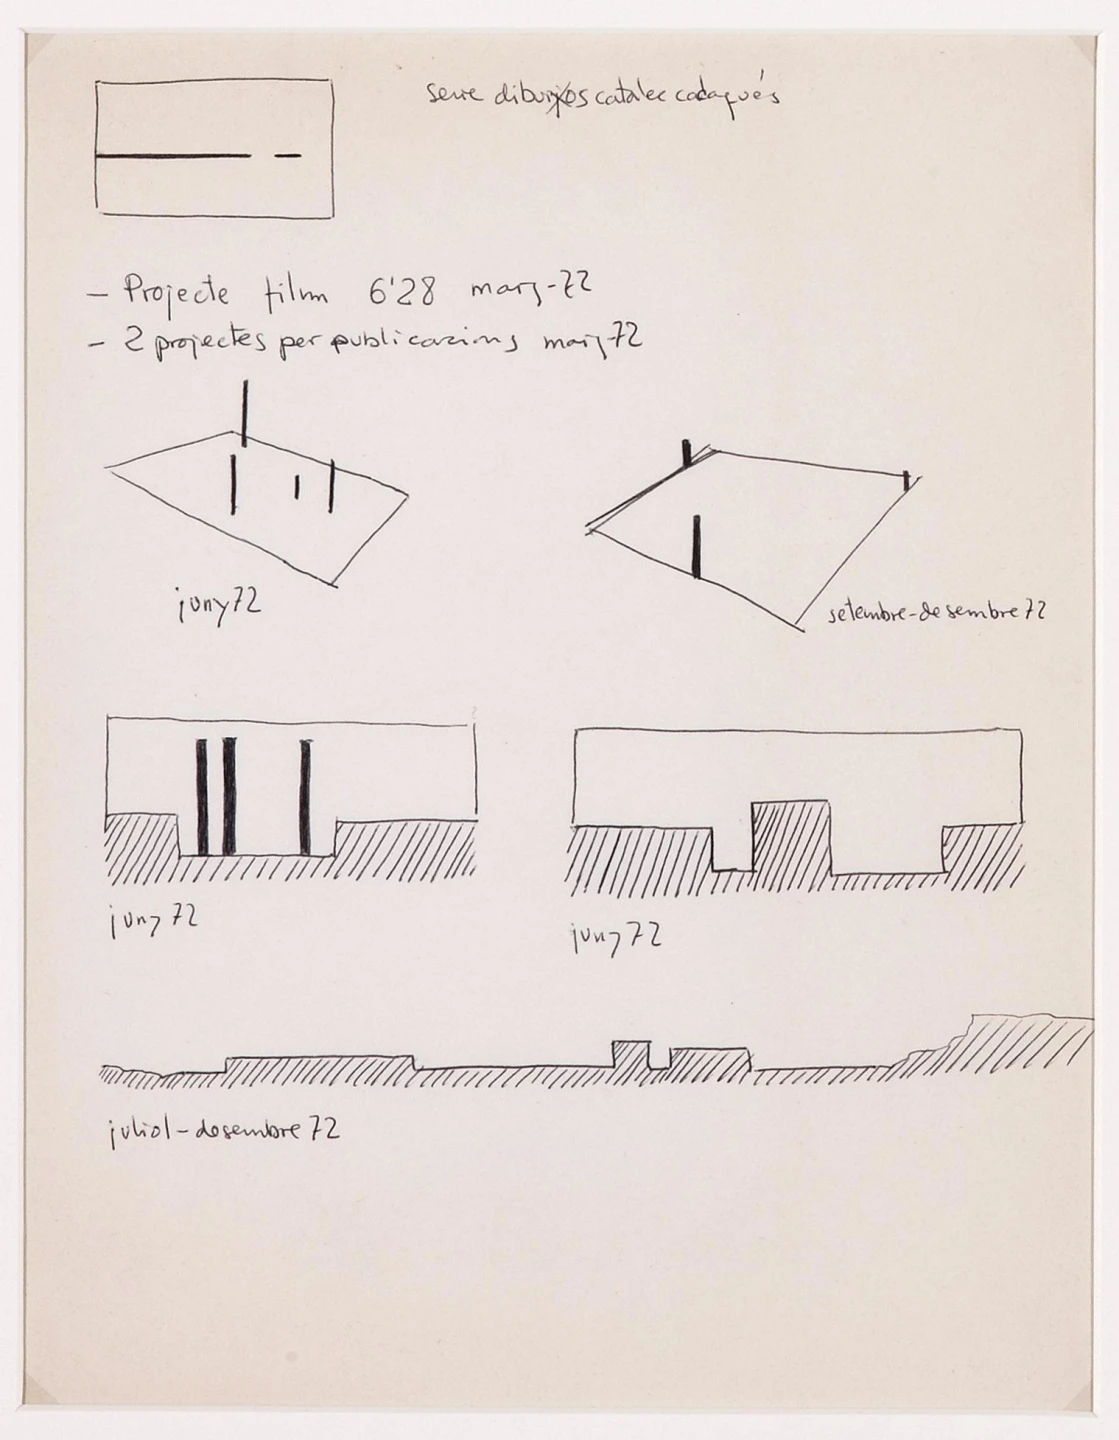 serie dibuixos catàlec cadaqués
– Projecte film 6'28 març-72
– 2 projectes per publicacions març-72
juny 72
setembre-desembre 72
juny 72
juny 72
juliol-desembre 72